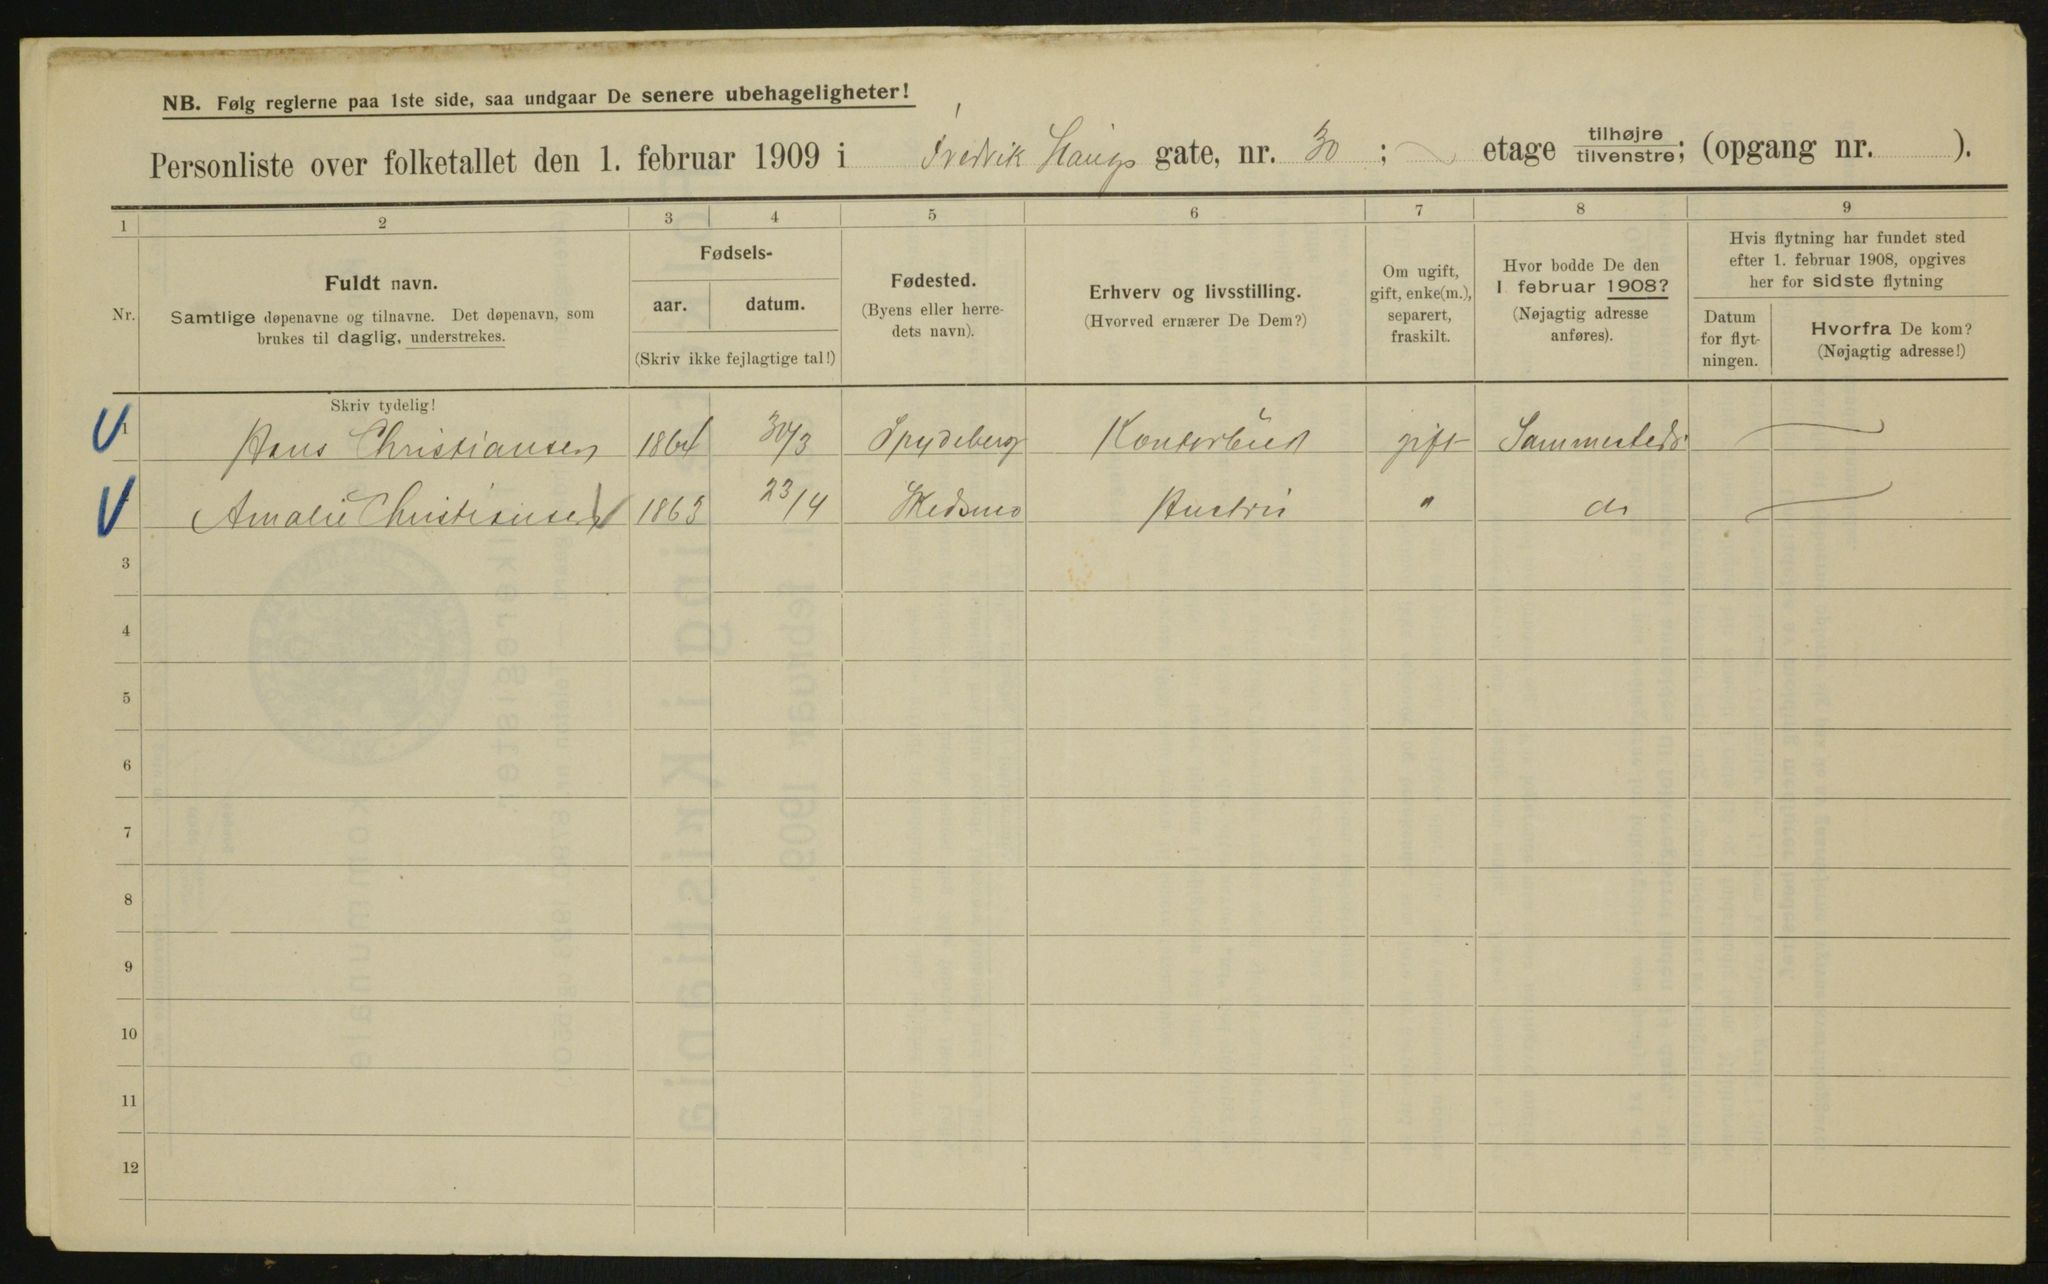 NB. Følg reglerne paa 1ste side, saa undgaar De senere ubehageligheter!
Personliste over folketallet den 1. februar 1909 i Fredrik Haugs gate, nr. 30 ; etage tilhøjre tilvenstre; (opgang nr. ).
1 2 3 4 5 6 7 8 9
Nr.
Fuldt navn.
Samtlige døpenavne og tilnavne. Det døpenavn, som
brukes til daglig, understrekes.
Fødsels-
aar. datum.
(Skriv ikke fejlagtige tal!)
Fødested.
(Byens eller herre-
dets navn).
Erhverv og livsstilling.
(Hvorved ernærer De Dem?)
Om ugift,
gift, enke(m.),
separert,
fraskilt.
Hvor bodde De den
1 februar 1908?
(Nøjagtig adresse
anføres).
Hvis flytning har fundet sted
efter 1. februar 1908, opgives
her for sidste flytning
Datum
for flyt-
ningen.
Hvorfra De kom?
(Nøjagtig adresse!)
Skriv tydelig!
1 Hans Christiansen 1864 30/3 Spydeberg Kontorbud gift Sammesteds
Amalie Christiansen 1863 23/4 Skedsmo Hustru " do
3
4
5
6
7
8
9
10
11
12